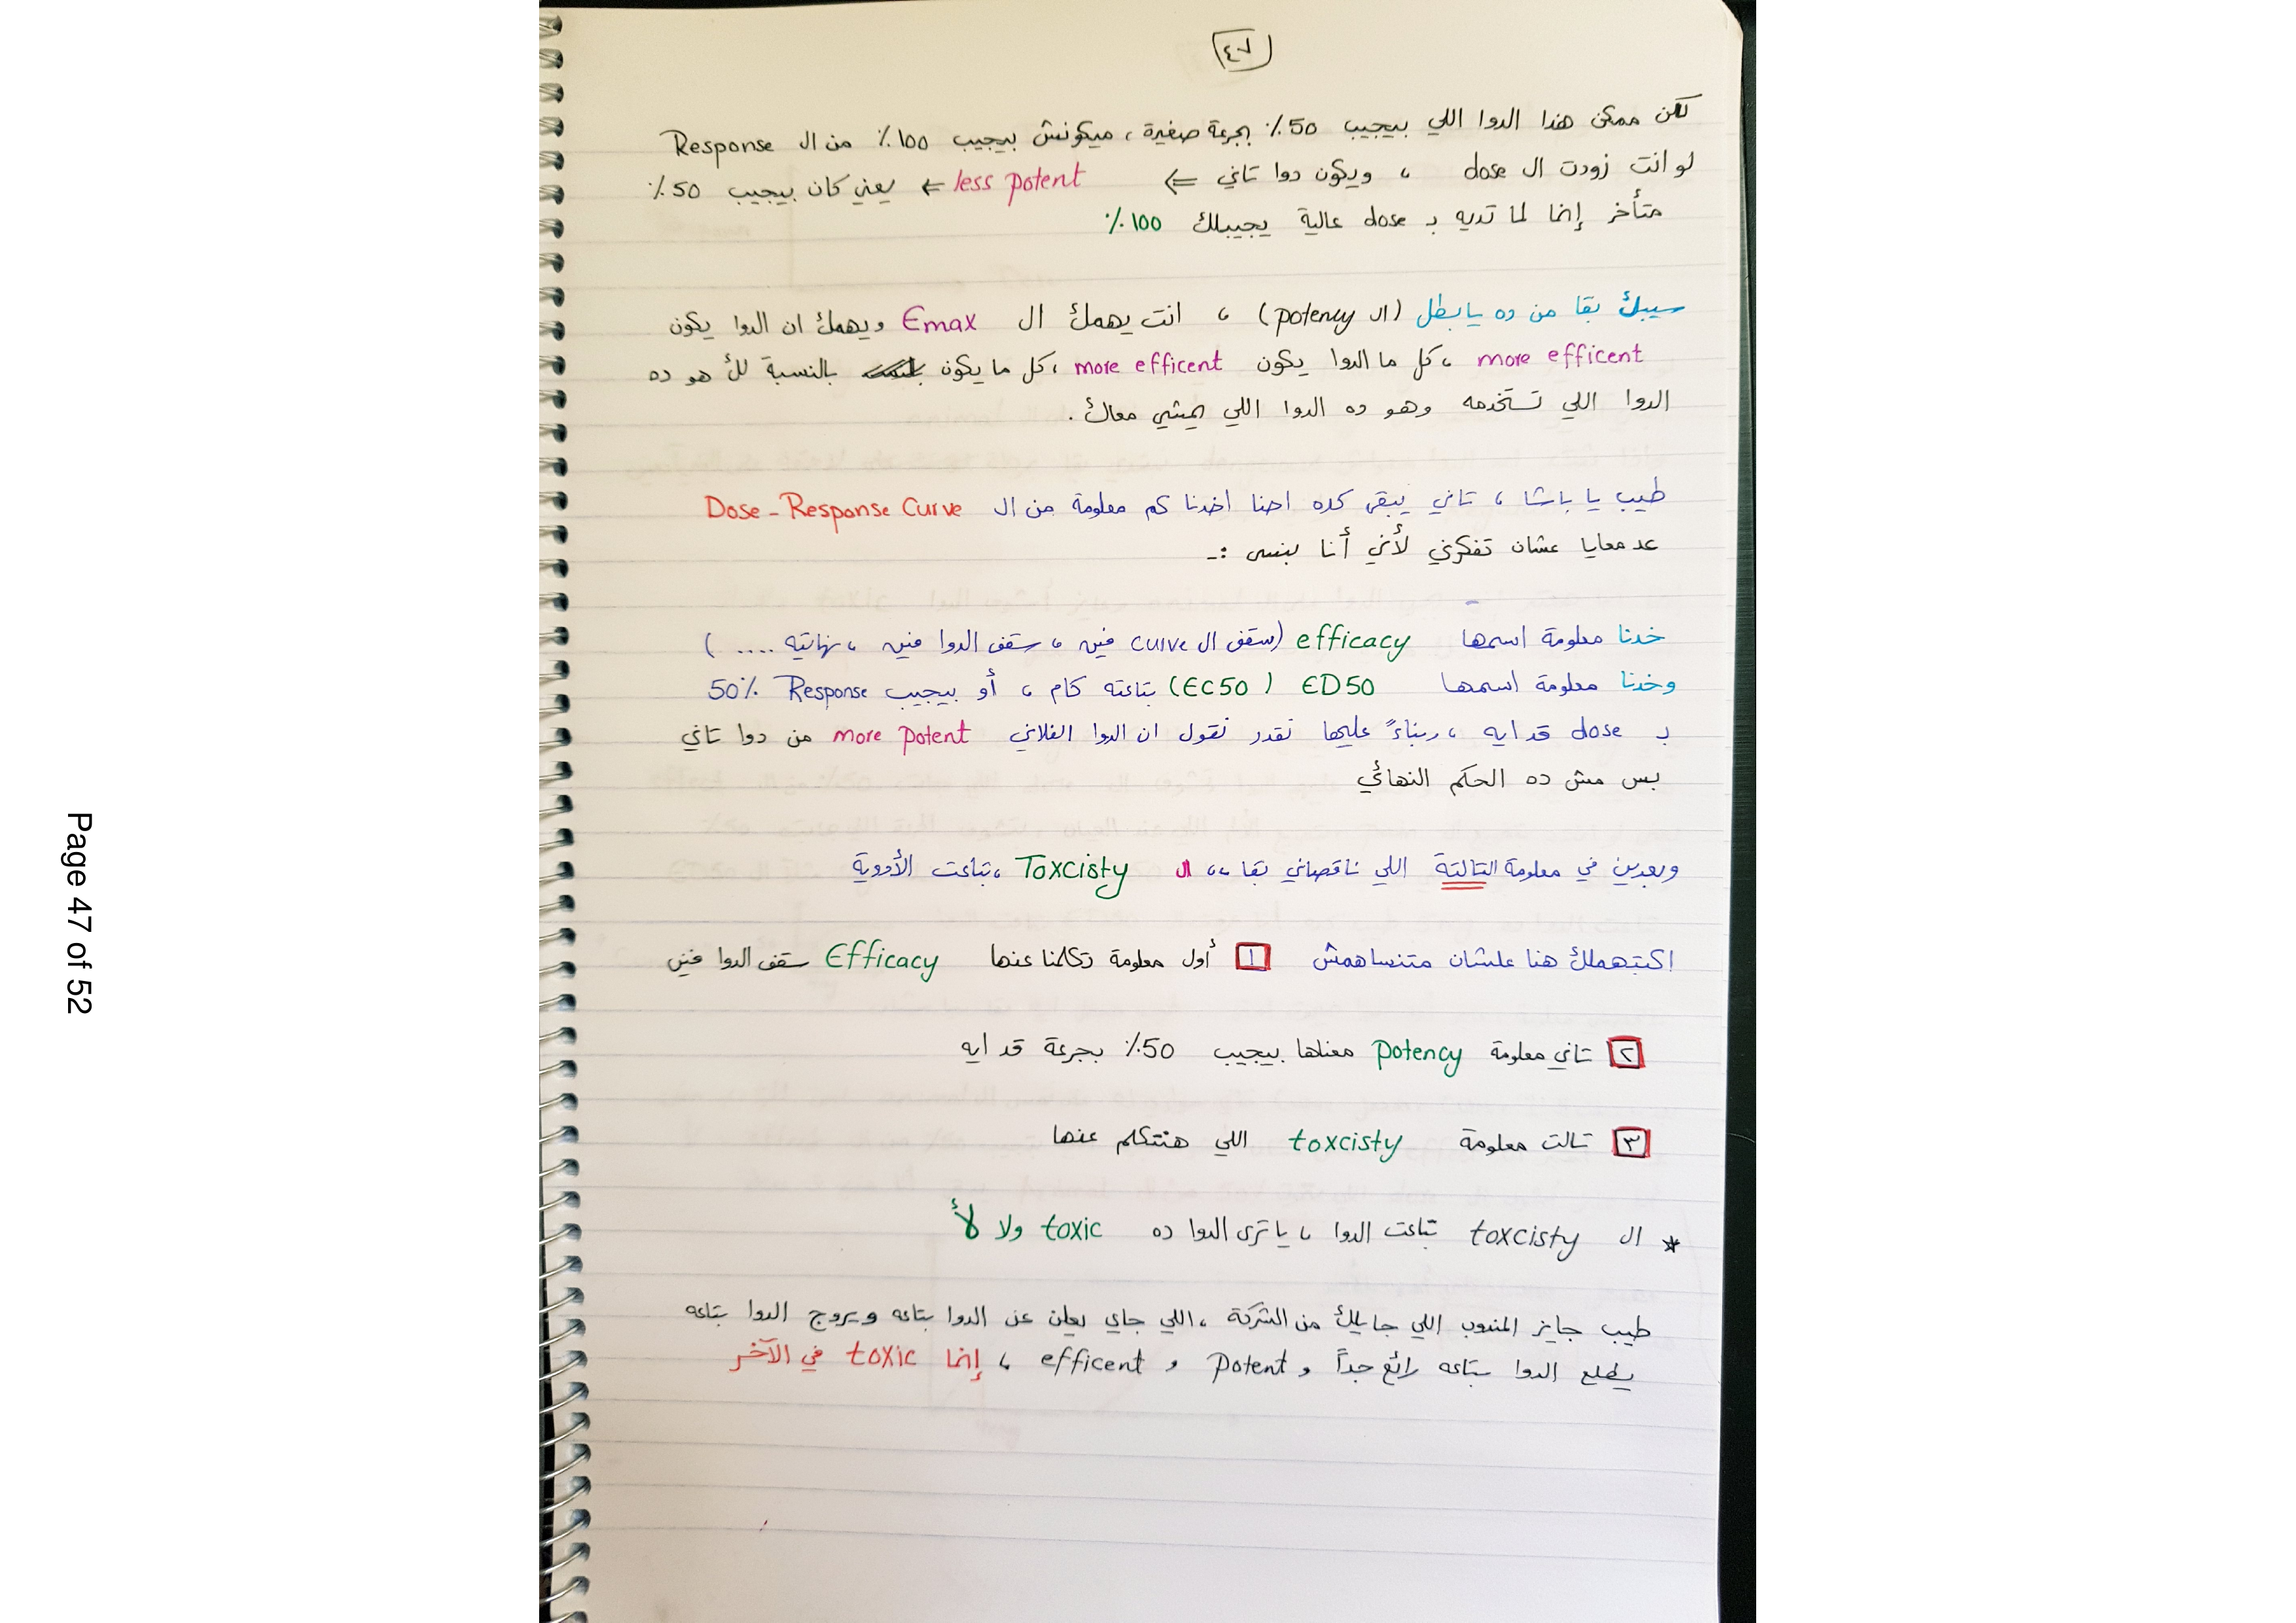 ٤٧
لكن ممكن هذا الدوا اللي بيجيب 50٪ بجرعة صغيرة ، ميكونش بيجيب 100٪ من ال Response
لو انت زودت ال dose ، ويكون دوا تاني ⇐ less potent ← يعني كان بيجيب 50٪
متأخر إنما لما تديه بـ dose عالية يجيبلك 100٪
سيبك بقا من ده يا بطل (ال potency) ، انت يهمك ال Emax ويهمك ان الدوا يكون
more efficent ، كل ما الدوا يكون more efficent ، كل ما يكون بالنسبة لك هو ده
الدوا اللي تستخدمه وهو ده الدوا اللي يمشي معاك .
طيب يا باشا ، تاني يبقى كده احنا اخدنا كم معلومة من ال Dose - Response Curve
عد معايا عشان تفكرني لأني أنا بنسى :-
خدنا معلومة اسمها efficacy (سقف ال curve فين ، سقف الدوا فين ، نهايته .... )
وخدنا معلومة اسمها ED50 (EC50) بتاعته كام ، أو بيجيب 50٪ Response
بـ dose قد ايه ، وبناءً عليها نقدر نقول ان الدوا الفلاني more potent من دوا تاني
بس مش ده الحكم النهائي
وبعدين في معلومة التالتة اللي ناقصاني بقا ،، ال Toxcisty ، بتاعت الأدوية
اكتبهملك هنا علشان متنساهمش ١ أول معلومة تكلمنا عنها Efficacy سقف الدوا فين
٢ تاني معلومة potency معناها بيجيب 50٪ بجرعة قد ايه
٣ تالت معلومة toxcisty اللي هنتكلم عنها
* ال toxcisty بتاعت الدوا ، يا ترى الدوا ده toxic ولا لأ
طيب جايز المندوب اللي جايلك من الشركة ، اللي جاي يعلن عن الدوا بتاعه ويروج الدوا بتاعه
يطلع الدوا بتاعه رائع جداً و Potent و efficent ، إنما toxic في الآخر
Page 47 of 52